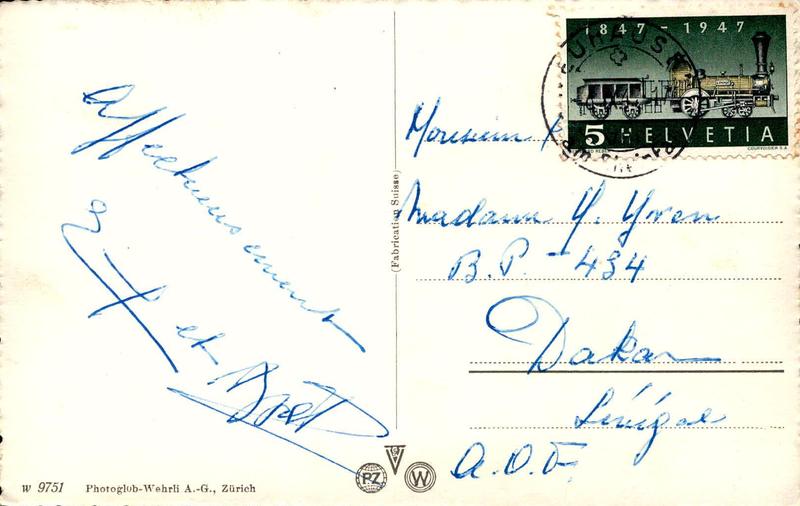 Affectueusement
et
1847 - 1947
5 HELVETIA
COURVOISIER S.A.
Monsieur
Madame Y. Yven
B.P. - 434
Dakar
Sénégal
A.O.F.
(Fabrication Suisse)
W 9751 Photoglob-Wehrli A.-G., Zürich
PZ
W